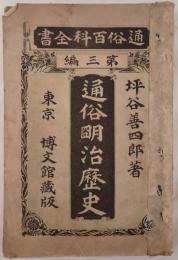 通俗百科全書
第三編
坪谷善四郎著
通俗明治歴史
東京 博文館蔵版